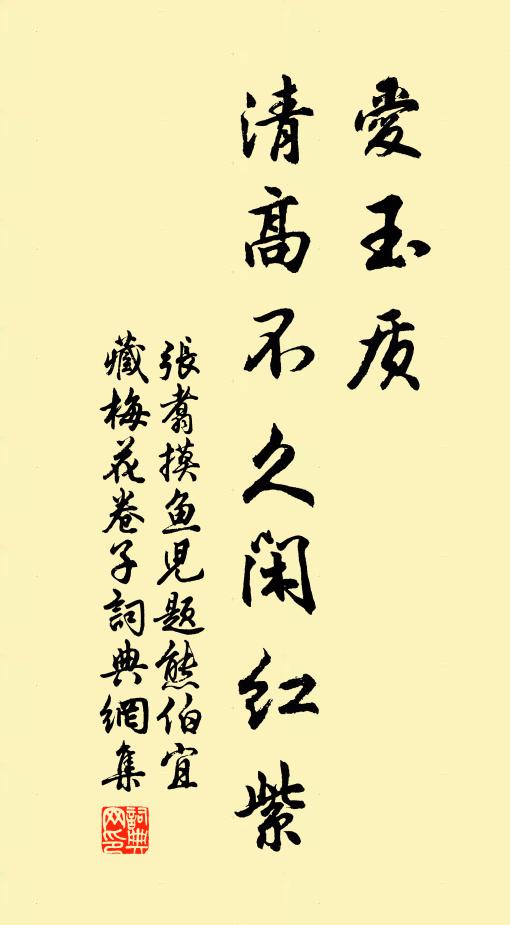 愛玉质
清高不久閑红紫
張翥摸鱼児題熊伯宜
藏梅花卷子詞典網集
詞典網印